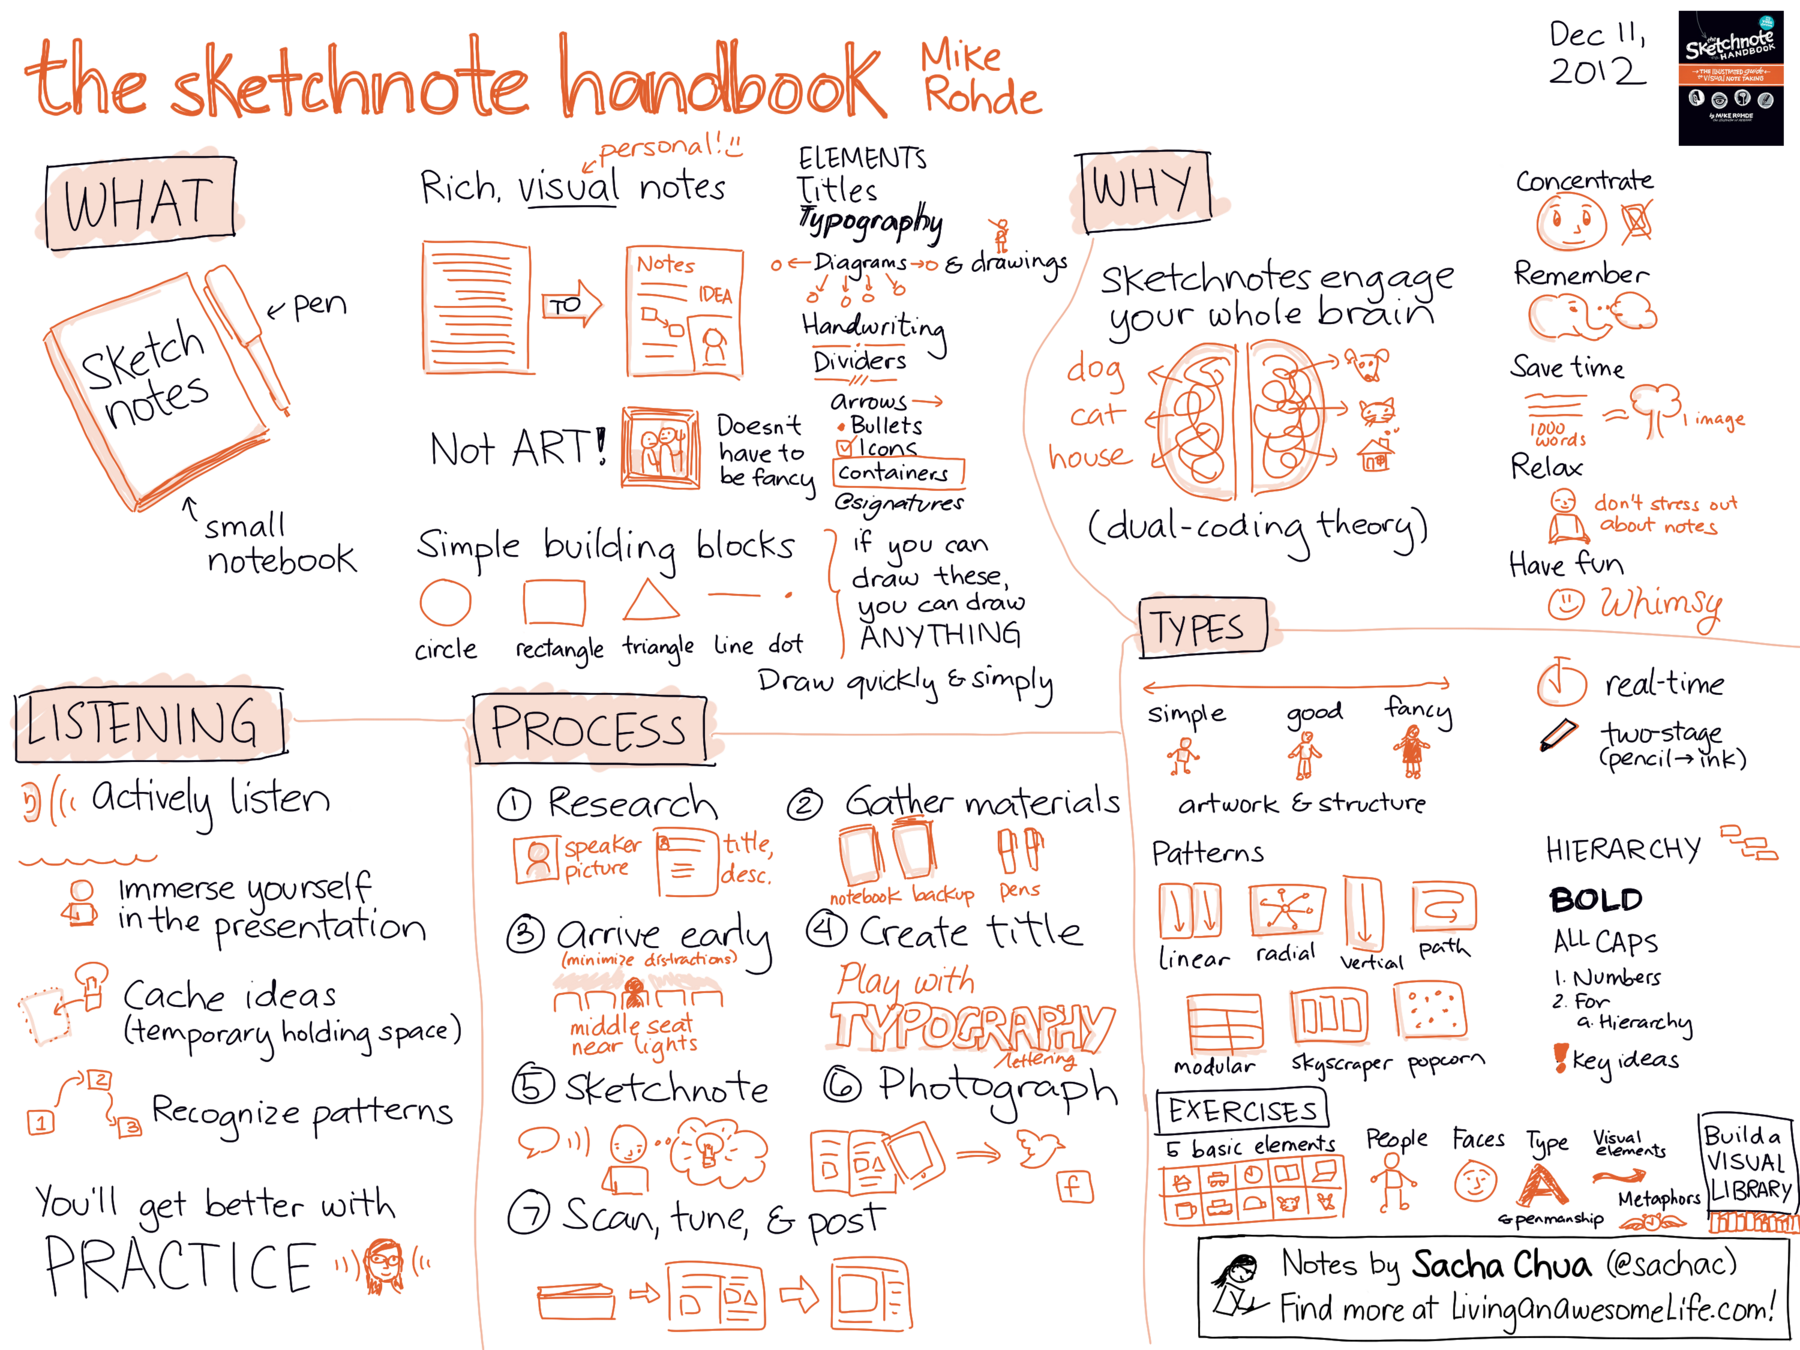 the sketchnote handbook
Mike
Rohde
Dec 11,
2012
the
Sketchnote
HANDBOOK
THE ILLUSTRATED guide
to VISUAL NOTE TAKING
by MIKE ROHDE
WHAT
Sketch
notes
pen
small
notebook
personal!
Rich, visual notes
TO
Notes
IDEA
Not ART!
Doesn't
have to
be fancy
Simple building blocks
circle
rectangle
triangle
line
dot
if you can
draw these,
you can draw
ANYTHING
Draw quickly & simply
ELEMENTS
Titles
Typography
Diagrams
& drawings
Handwriting
Dividers
arrows
Bullets
Icons
Containers
@signatures
WHY
Sketchnotes engage
your whole brain
dog
cat
house
(dual-coding theory)
Concentrate
Remember
Save time
1000
words
=
1 image
Relax
don't stress out
about notes
Have fun
Whimsy
LISTENING
actively listen
Immerse yourself
in the presentation
Cache ideas
(temporary holding space)
1
2
3
Recognize patterns
You'll get better with
PRACTICE
PROCESS
1 Research
speaker
picture
title,
desc.
2 Gather materials
notebook
backup
pens
3 Arrive early
(minimize distractions)
middle seat
near lights
4 Create title
Play with
TYPOGRAPHY
lettering
5 Sketchnote
6 Photograph
f
7 Scan, tune, & post
TYPES
simple
good
fancy
artwork & structure
real-time
two-stage
(pencil→ink)
Patterns
linear
radial
vertial
path
modular
skyscraper
popcorn
HIERARCHY
BOLD
ALL CAPS
1. Numbers
2. For
a. Hierarchy
! Key ideas
EXERCISES
5 basic elements
People
Faces
Type
A
& penmanship
Visual
elements
Metaphors
Build a
VISUAL
LIBRARY
Notes by Sacha Chua (@sachac)
Find more at LivingAnAwesomeLife.com!